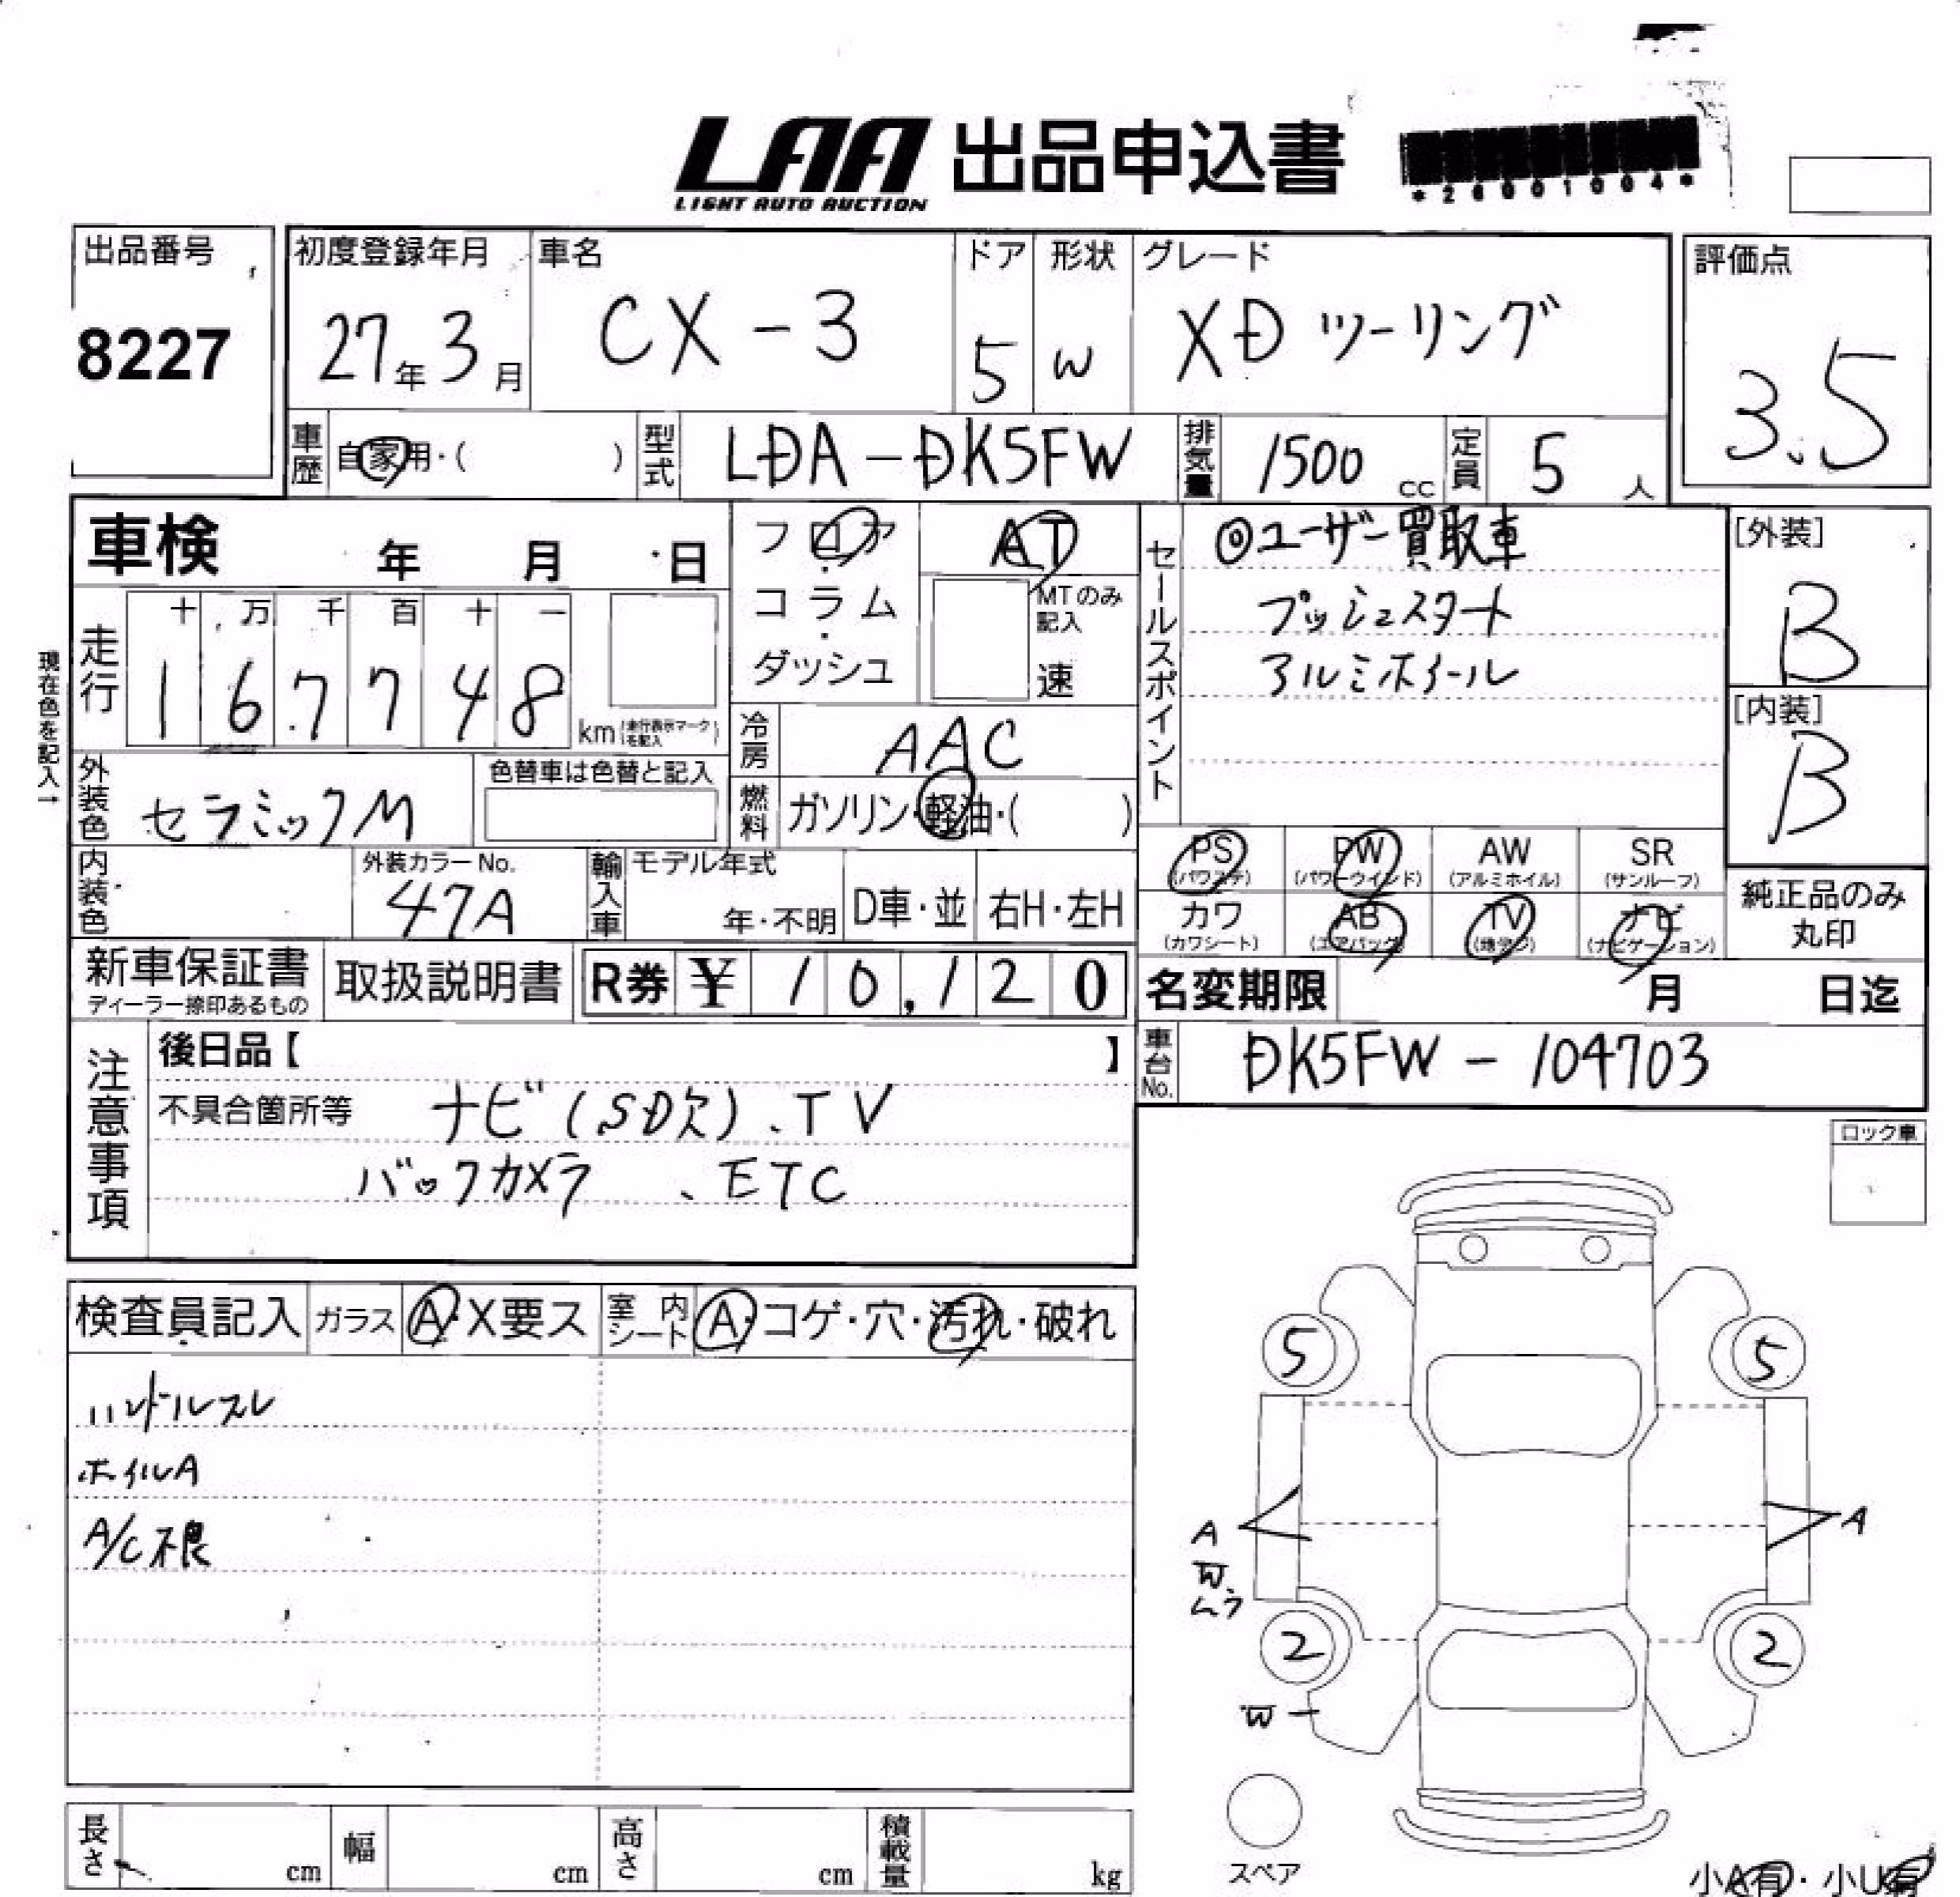 LAA 出品申込書
LIGHT AUTO AUCTION
*26001004*
出品番号
8227
初度登録年月
27年3月
車名
CX-3
ドア
5
形状
W
グレード
XD ツーリング
評価点
3.5
車歴
自家用・( )
型式
LDA-DK5FW
排気量
1500 cc
定員
5 人
車検 年 月 日
フロア・コラム・ダッシュ
AT
MTのみ記入
速
セールスポイント
◎ユーザー買取車
プッシュスタート
アルミホイール
[外装]
B
[内装]
B
現在色を記入→
走行
十 万 千 百 十 一
1 6 7 7 4 8 km (走行表示マークを記入)
冷房
AAC
外装色
セラミックM
色替車は色替と記入
燃料
ガソリン・軽油・( )
内装色
外装カラーNo.
47A
輸入車
モデル年式
年・不明
D車・並
右H・左H
PS (パワステ)
PW (パワーウインド)
AW (アルミホイル)
SR (サンルーフ)
カワ (カワシート)
AB (エアバッグ)
TV (地デジ)
ナビ (ナビゲーション)
純正品のみ丸印
新車保証書
ディーラー捺印あるもの
取扱説明書
R券 ¥ 10,120
名変期限 月 日迄
車台No.
DK5FW-104703
注意事項
後日品【 】
不具合箇所等
ナビ(SD欠)、TV
バックカメラ、ETC
ロック車
検査員記入
ガラス
A・X要ス
室内シート
A・コゲ・穴・汚れ・破れ
ハンドルスレ
ホイルA
A/C不良
5
5
A
W
ムラ
A
2
2
W
スペア
小A有・小U有
長さ cm
幅 cm
高さ cm
積載量 kg